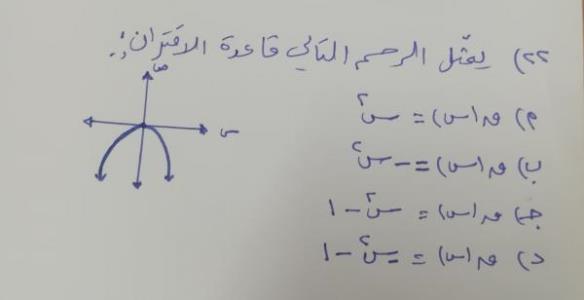 ٢٢) يمثل الرسم التالي قاعدة الاقتران :
ص
س
م) ق(س) = س٢
ب) ق(س) = -س٢
جـ) ق(س) = س٢ - ١
د) ق(س) = -س٢ - ١